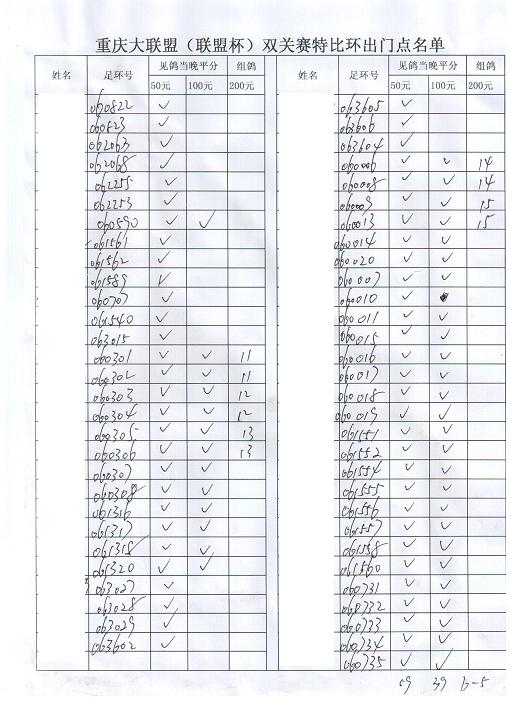 重庆大联盟（联盟杯）双关赛特比环出门点名单
姓名 足环号 见鸽当晚平分 组鸽
50元 100元 200元
060822 ✓
060823 ✓
062063 ✓
062068 ✓
062255 ✓
062253 ✓
060590 ✓ ✓
061561 ✓
061562 ✓
061589 ✓
060707 ✓
061540 ✓
063015 ✓
060301 ✓ ✓ 11
060302 ✓ ✓ 11
060303 ✓ ✓ 12
060304 ✓ ✓ 12
060305 ✓ ✓ 13
060306 ✓ ✓ 13
060307 ✓ ✓
060308 ✓ ✓
061316 ✓ ✓
061317 ✓ ✓
061318 ✓ ✓
061320 ✓ ✓
063027 ✓
063028 ✓
063029 ✓
063602 ✓
姓名 足环号 见鸽当晚平分 组鸽
50元 100元 200元
063605 ✓
063606 ✓
063604 ✓
060006 ✓ ✓ 14
060008 ✓ ✓ 14
060009 ✓ ✓ 15
060013 ✓ ✓ 15
060014 ✓ ✓
060020 ✓ ✓
060007 ✓ ✓
060010 ✓ ✓
060011 ✓ ✓
060015 ✓ ✓
060016 ✓ ✓
060017 ✓ ✓
060018 ✓ ✓
060019 ✓ ✓
061551 ✓ ✓
061552 ✓ ✓
061554 ✓ ✓
061555 ✓ ✓
061556 ✓ ✓
061557 ✓ ✓
061558 ✓ ✓
061560 ✓ ✓
060731 ✓ ✓
060732 ✓ ✓
060733 ✓ ✓
060734 ✓ ✓
060735 ✓ ✓
59 39